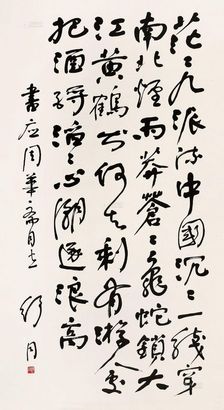 茫〻九派流中國沉〻一綫穿
南北煙雨莽蒼〻龜蛇鎖大
江黄鶴知何去剩有游人處
把酒酹滔〻心潮逐浪高
書应周華同志
舒同